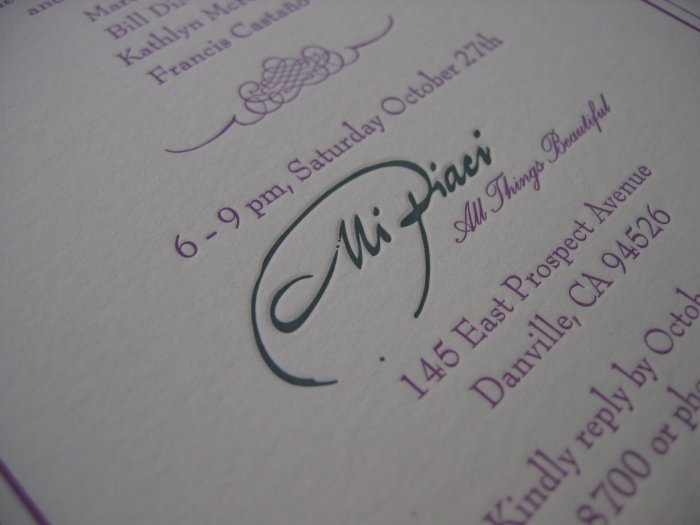 and
Bill
Kathlyn
Francis Castaño
6 - 9 pm, Saturday October 27th
Mi Piaci
All Things Beautiful
145 East Prospect Avenue
Danville, CA 94526
Kindly reply by October
8700 or